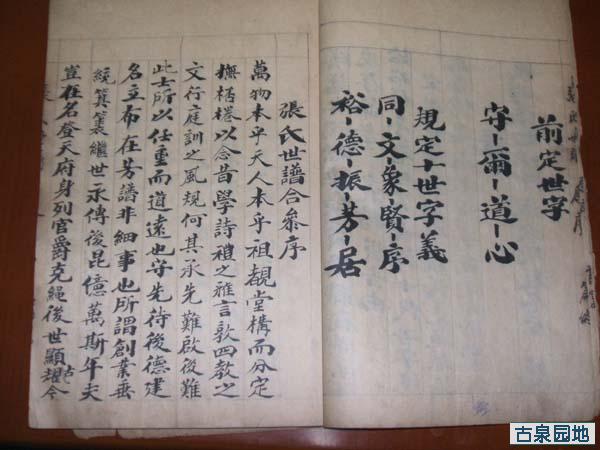 前定世字
守－爾－道－心
規定十世字義
同－文－象－賢－序
裕－德－振－芳－居
張氏世譜合叅序
萬物本乎天人本乎祖覩堂構而分定
撫桮棬以念昔學詩禮之雅言敦四教之
文行庭訓之風規何其承先難啟後難
此士所以任重而道遠也守先待後德建
名立布在芳譜非細事也所謂創業垂
統箕裘繼世永傳後昆億萬斯年夫
豈在名登天府身列官爵克繩後世顯耀今
古泉园地